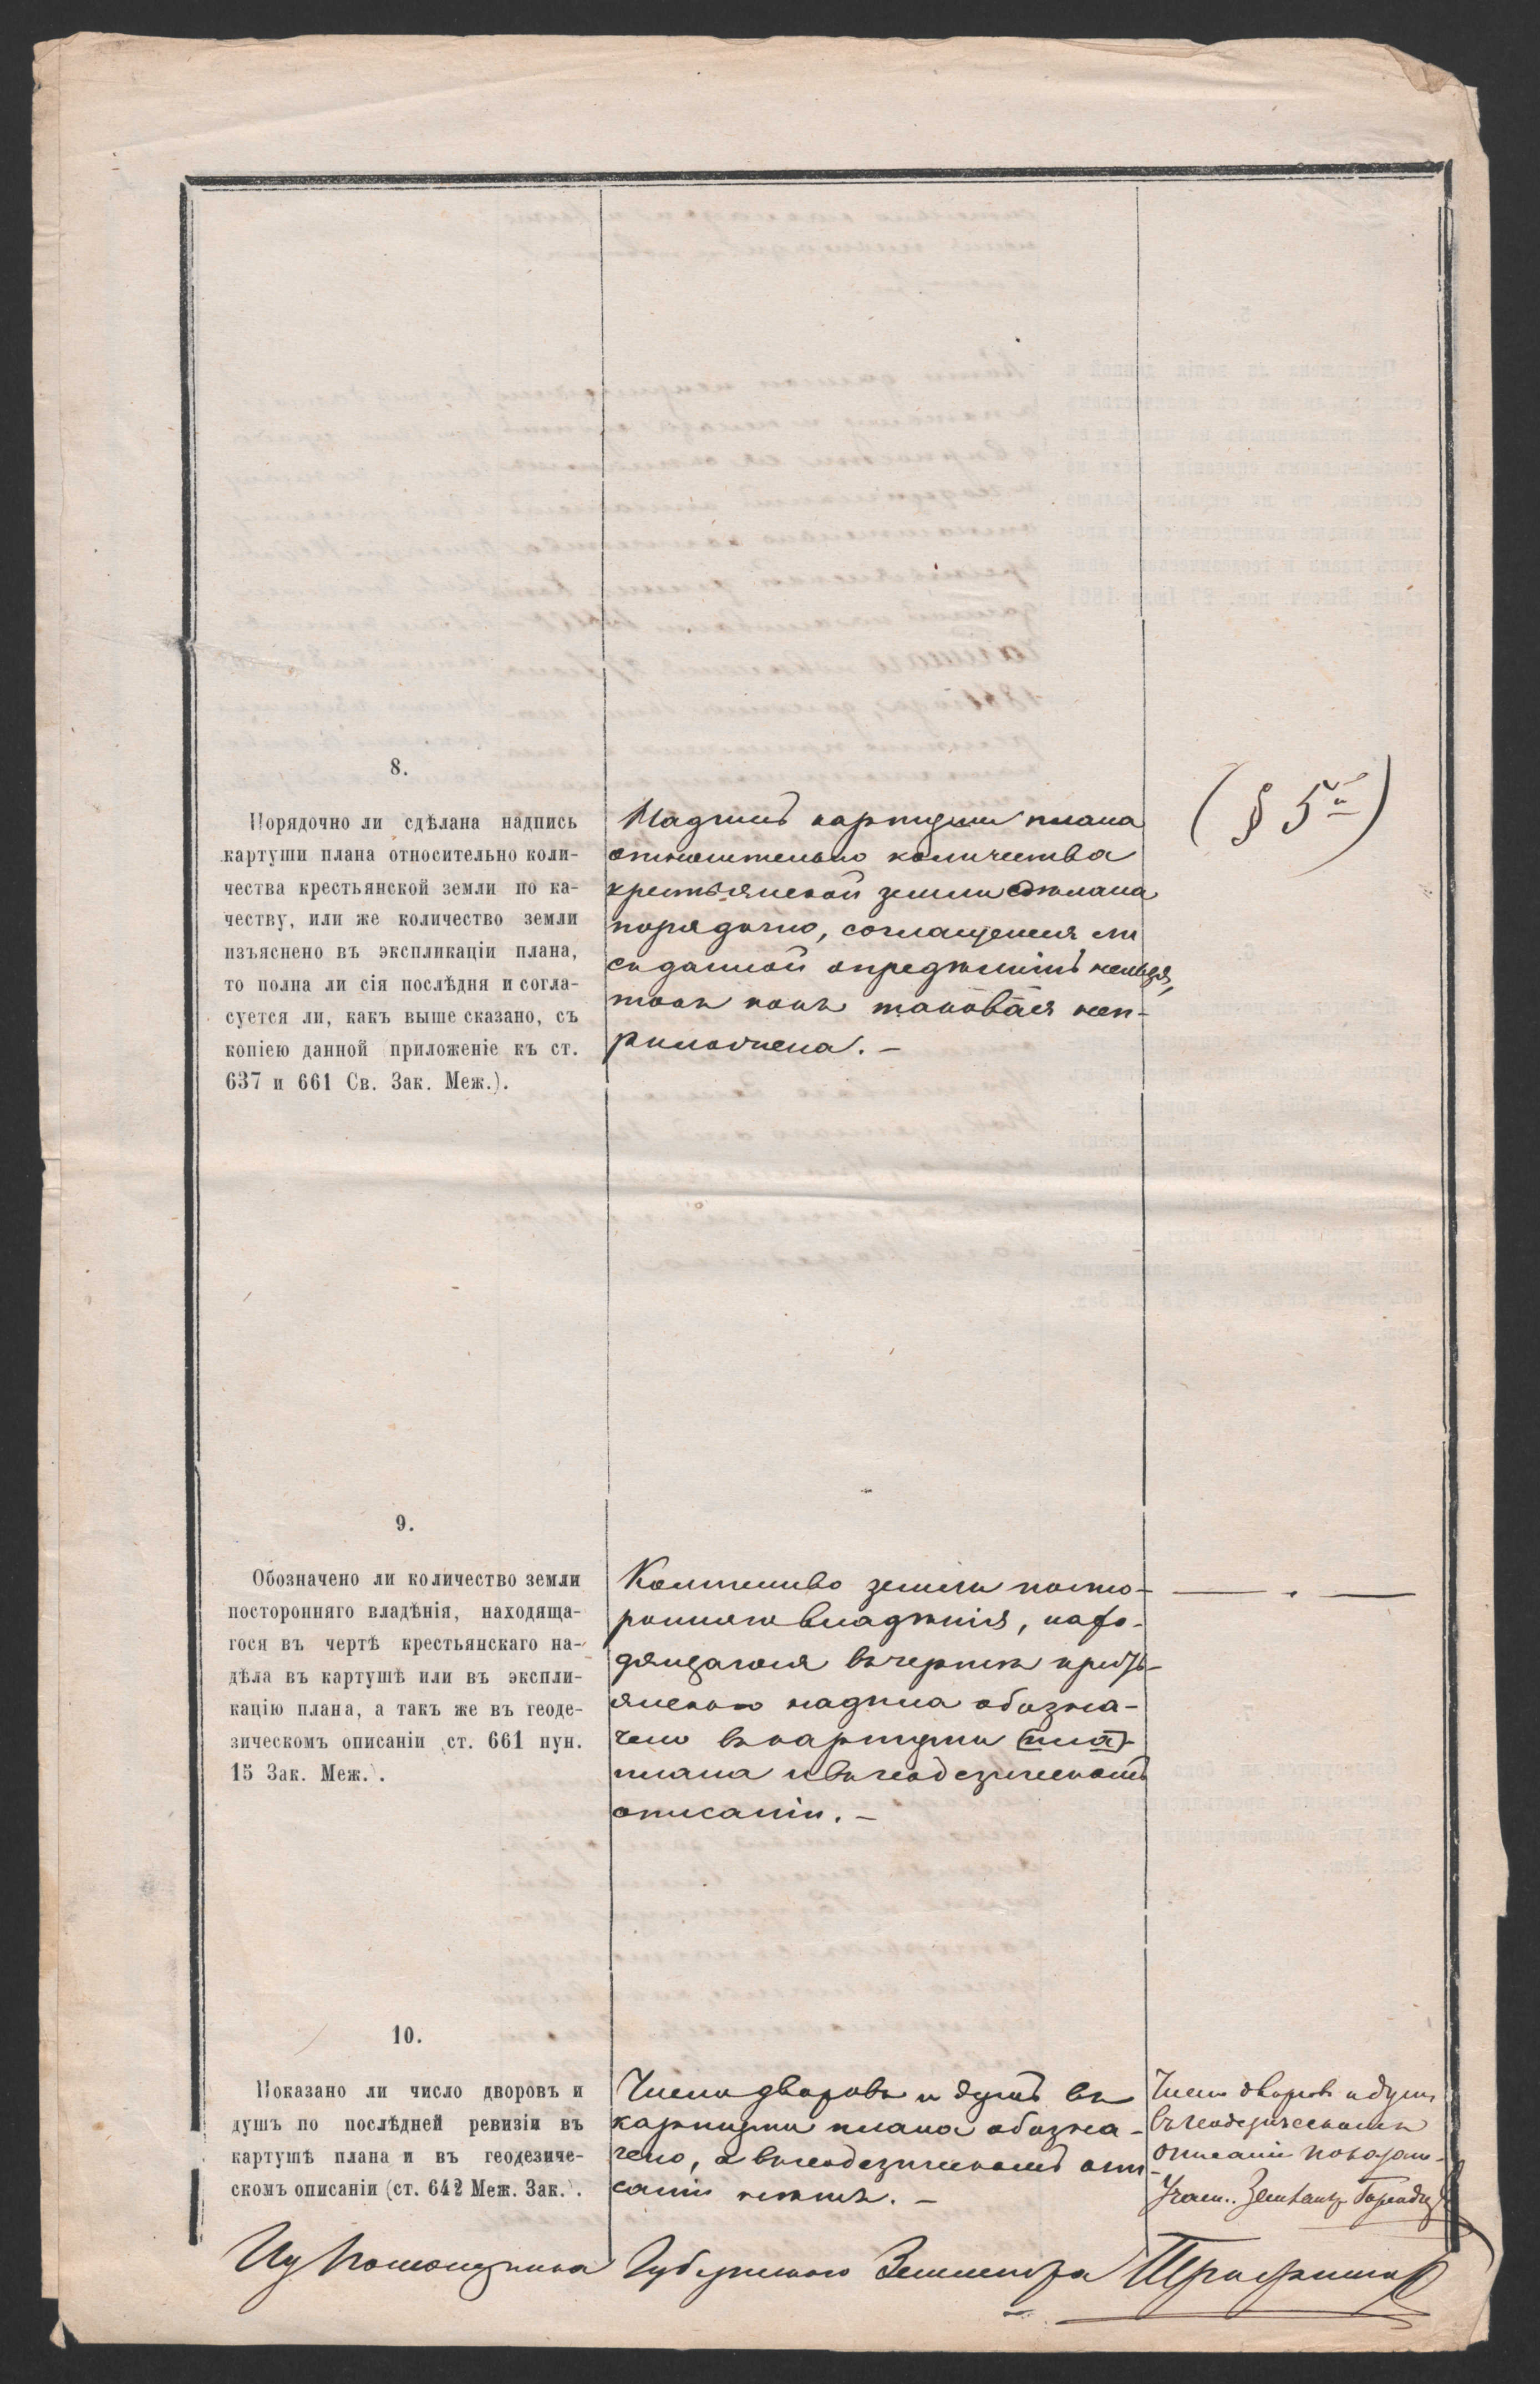 8.
Порядочно ли сдѣлана надпись
картуши плана относительно коли-
чества крестьянской земли по ка-
честву, или же количество земли
изъяснено въ экспликаціи плана,
то полна ли сія послѣдня и согла-
суется ли, какъ выше сказано, съ
копіею данной приложеніе къ ст.
637 и 661 Св. Зак. Меж.).
Надпись картуши плана
относительно количества
крестьянской земли сдѣлана
порядочно, согласуется ли
съ данной опредѣлить нельзя,
такъ какъ таковая неп-
риложена. —
(§ 5й)
9.
Обозначено ли количество земли
посторонняго владѣнія, находяща-
гося въ чертѣ крестьянскаго на-
дѣла въ картушѣ или въ экспли-
кацію плана, а такъ же въ геоде-
зическомъ описаніи ст. 661 пун.
15 Зак. Меж.).
Количество земли посто-
ронняго владѣнія, нахо-
дящагося въ чертѣ кресть-
янскаго надѣла обозна-
чено въ картуши (пла)
плана и въ геодезическомъ
описаніи. —
— . —
10.
Показано ли число дворовъ и
душъ по послѣдней ревизіи въ
картушѣ плана и въ геодезиче-
скомъ описаніи (ст. 642 Меж. Зак.).
Число дворовъ и душъ въ
картуши плана обозна-
чено, а въ геодезическомъ опи-
саніи нѣтъ. —
Число дворовъ и душъ
въ геодезическомъ
описаніи
Землемѣръ
Губернскаго Землемѣра